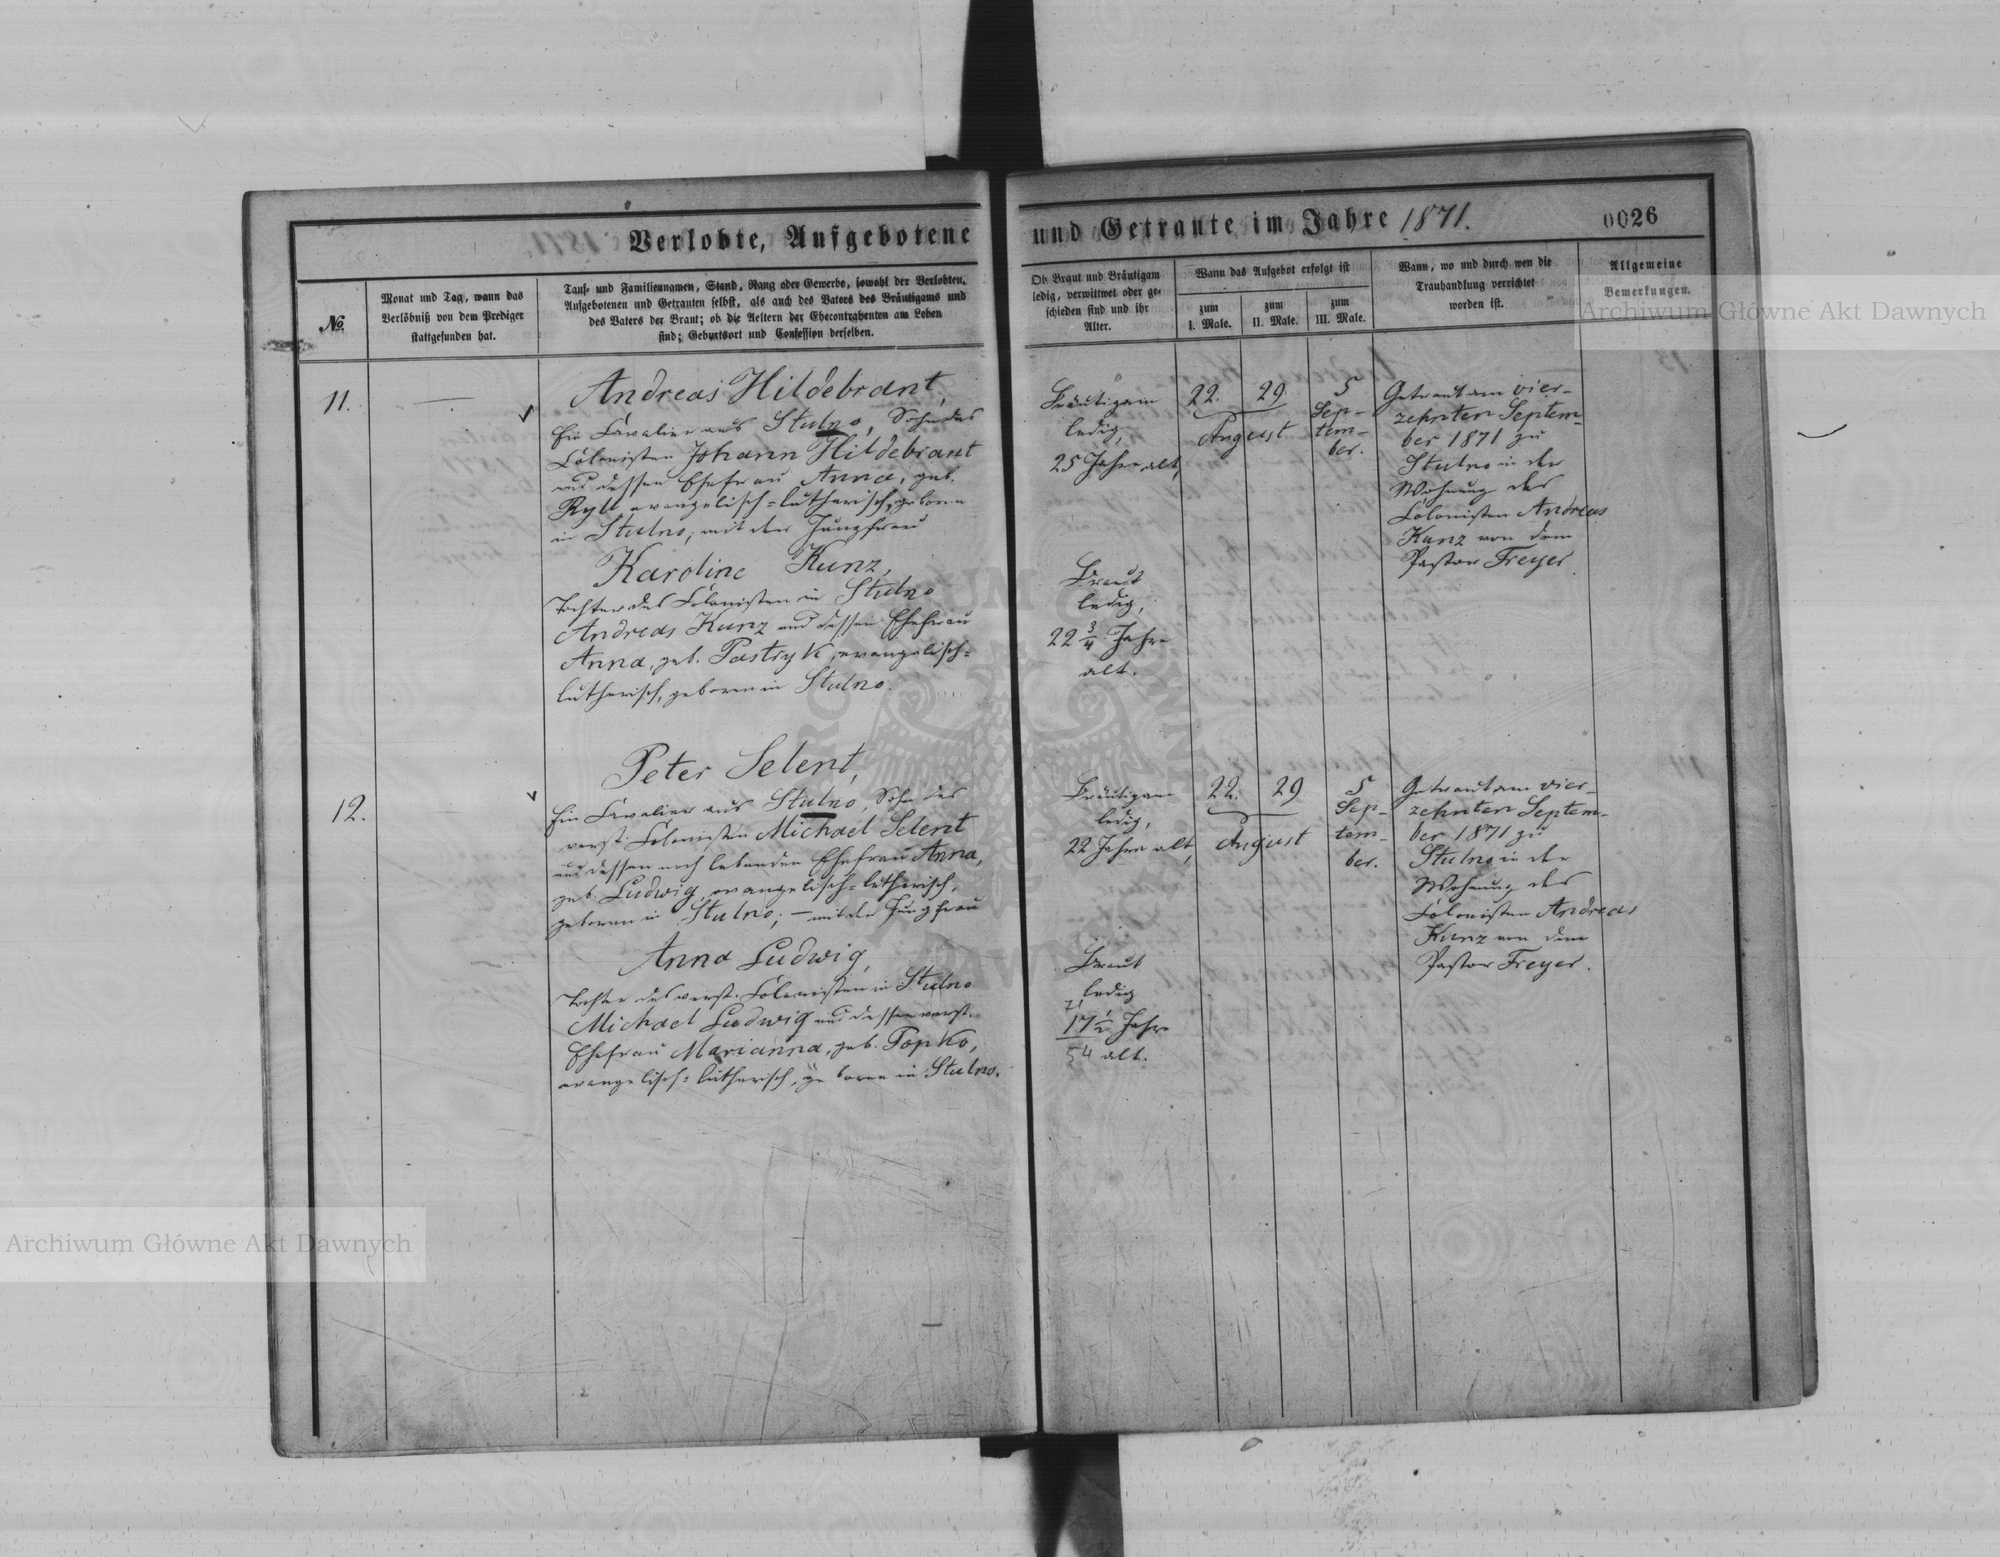 Verlobte, Aufgebotene und Getraute im Jahre 1871.
0026
No
Monat und Tag, wann das
Verlöbniß von dem Prediger
stattgefunden hat.
Tauf- und Familiennamen, Stand, Rang oder Gewerbe, sowohl der Verlobten,
Aufgebotenen und Getrauten selbst, als auch des Vaters des Bräutigams und
des Vaters der Braut; ob die Aeltern der Ehecontrahenten am Leben
sind; Geburtsort und Confession derselben.
Ob Braut und Bräutigam
ledig, verwittwet oder ge-
schieden sind und ihr
Alter.
Wann das Aufgebot erfolgt ist
zum
I. Male.
zum
II. Male.
zum
III. Male.
Wann, wo und durch wen die
Trauhandlung verrichtet
worden ist.
Allgemeine
Bemerkungen.
11.
Andreas Hildebrant,
Ein Cavalier aus Stulno, Sohn des
Colonisten Johann Hildebrant
und dessen Ehefrau Anna, geb.
Ryll, evangelisch=lutherisch, geboren
in Stulno; mit der Jungfrau
Karoline Kunz,
Tochter des Colonisten in Stulno
Andreas Kunz und dessen Ehefrau
Anna, geb. Pastryk, evangelisch=
lutherisch, geboren in Stulno.
Bräutigam
ledig,
25 Jahre alt,
Braut
ledig,
22 3/4 Jahre
alt.
22. 29.
August
5
Sep-
tem-
ber.
Getraut am vier-
zehnten Septem-
ber 1871 zu
Stulno in der
Wohnung des
Colonisten Andreas
Kunz von dem
Pastor Freyer.
12.
Peter Selent,
Ein Cavalier aus Stulno, Sohn des
verst. Colonisten Michael Selent
und dessen noch lebenden Ehefrau Anna,
geb. Ludwig, evangelisch=lutherisch,
geboren in Stulno; — mit der Jungfrau
Anna Ludwig,
Tochter des verst. Colonisten in Stulno
Michael Ludwig und dessen verst.
Ehefrau Marianna, geb. Popko,
evangelisch=lutherisch, geboren in Stulno.
Bräutigam
ledig,
22 Jahre alt,
Braut
ledig
17 1/2 Jahre
54 alt.
22. 29
August
5
Sep-
tem-
ber.
Getraut am vier-
zehnten Septem-
ber 1871 zu
Stulno in der
Wohnung des
Colonisten Andreas
Kunz von dem
Pastor Freyer.
Archiwum Główne Akt Dawnych
Archiwum Główne Akt Dawnych